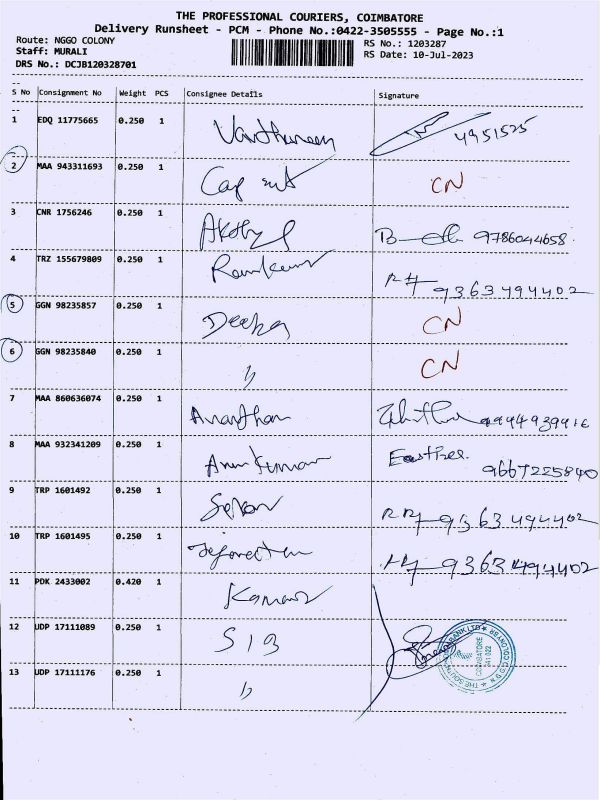 THE PROFESSIONAL COURIERS, COIMBATORE
Delivery Runsheet - PCM - Phone No.:0422-3505555 - Page No.:1
Route: NGGO COLONY
Staff: MURALI
DRS No.: DCJB120328701
RS No.: 1203287
RS Date: 10-Jul-2023
S No Consignment No Weight PCS Consignee Details Signature
1 EDQ 11775665 0.250 1 4951525
2 MAA 943311693 0.250 1 CN
3 CNR 1756246 0.250 1 9786044658
4 TRZ 155679809 0.250 1 Ramkumar 9363494402
5 GGN 98235857 0.250 1 Deepa CN
6 GGN 98235840 0.250 1 " CN
7 MAA 860636074 0.250 1 Ananthan
8 MAA 932341209 0.250 1 Arun Kumar 9667225840
9 TRP 1601492 0.250 1 Sekar 9363494402
10 TRP 1601495 0.250 1 9363494402
11 PDK 2433002 0.420 1
12 UDP 17111089 0.250 1 SIB
13 UDP 17111176 0.250 1 "
COIMBATORE
641 022